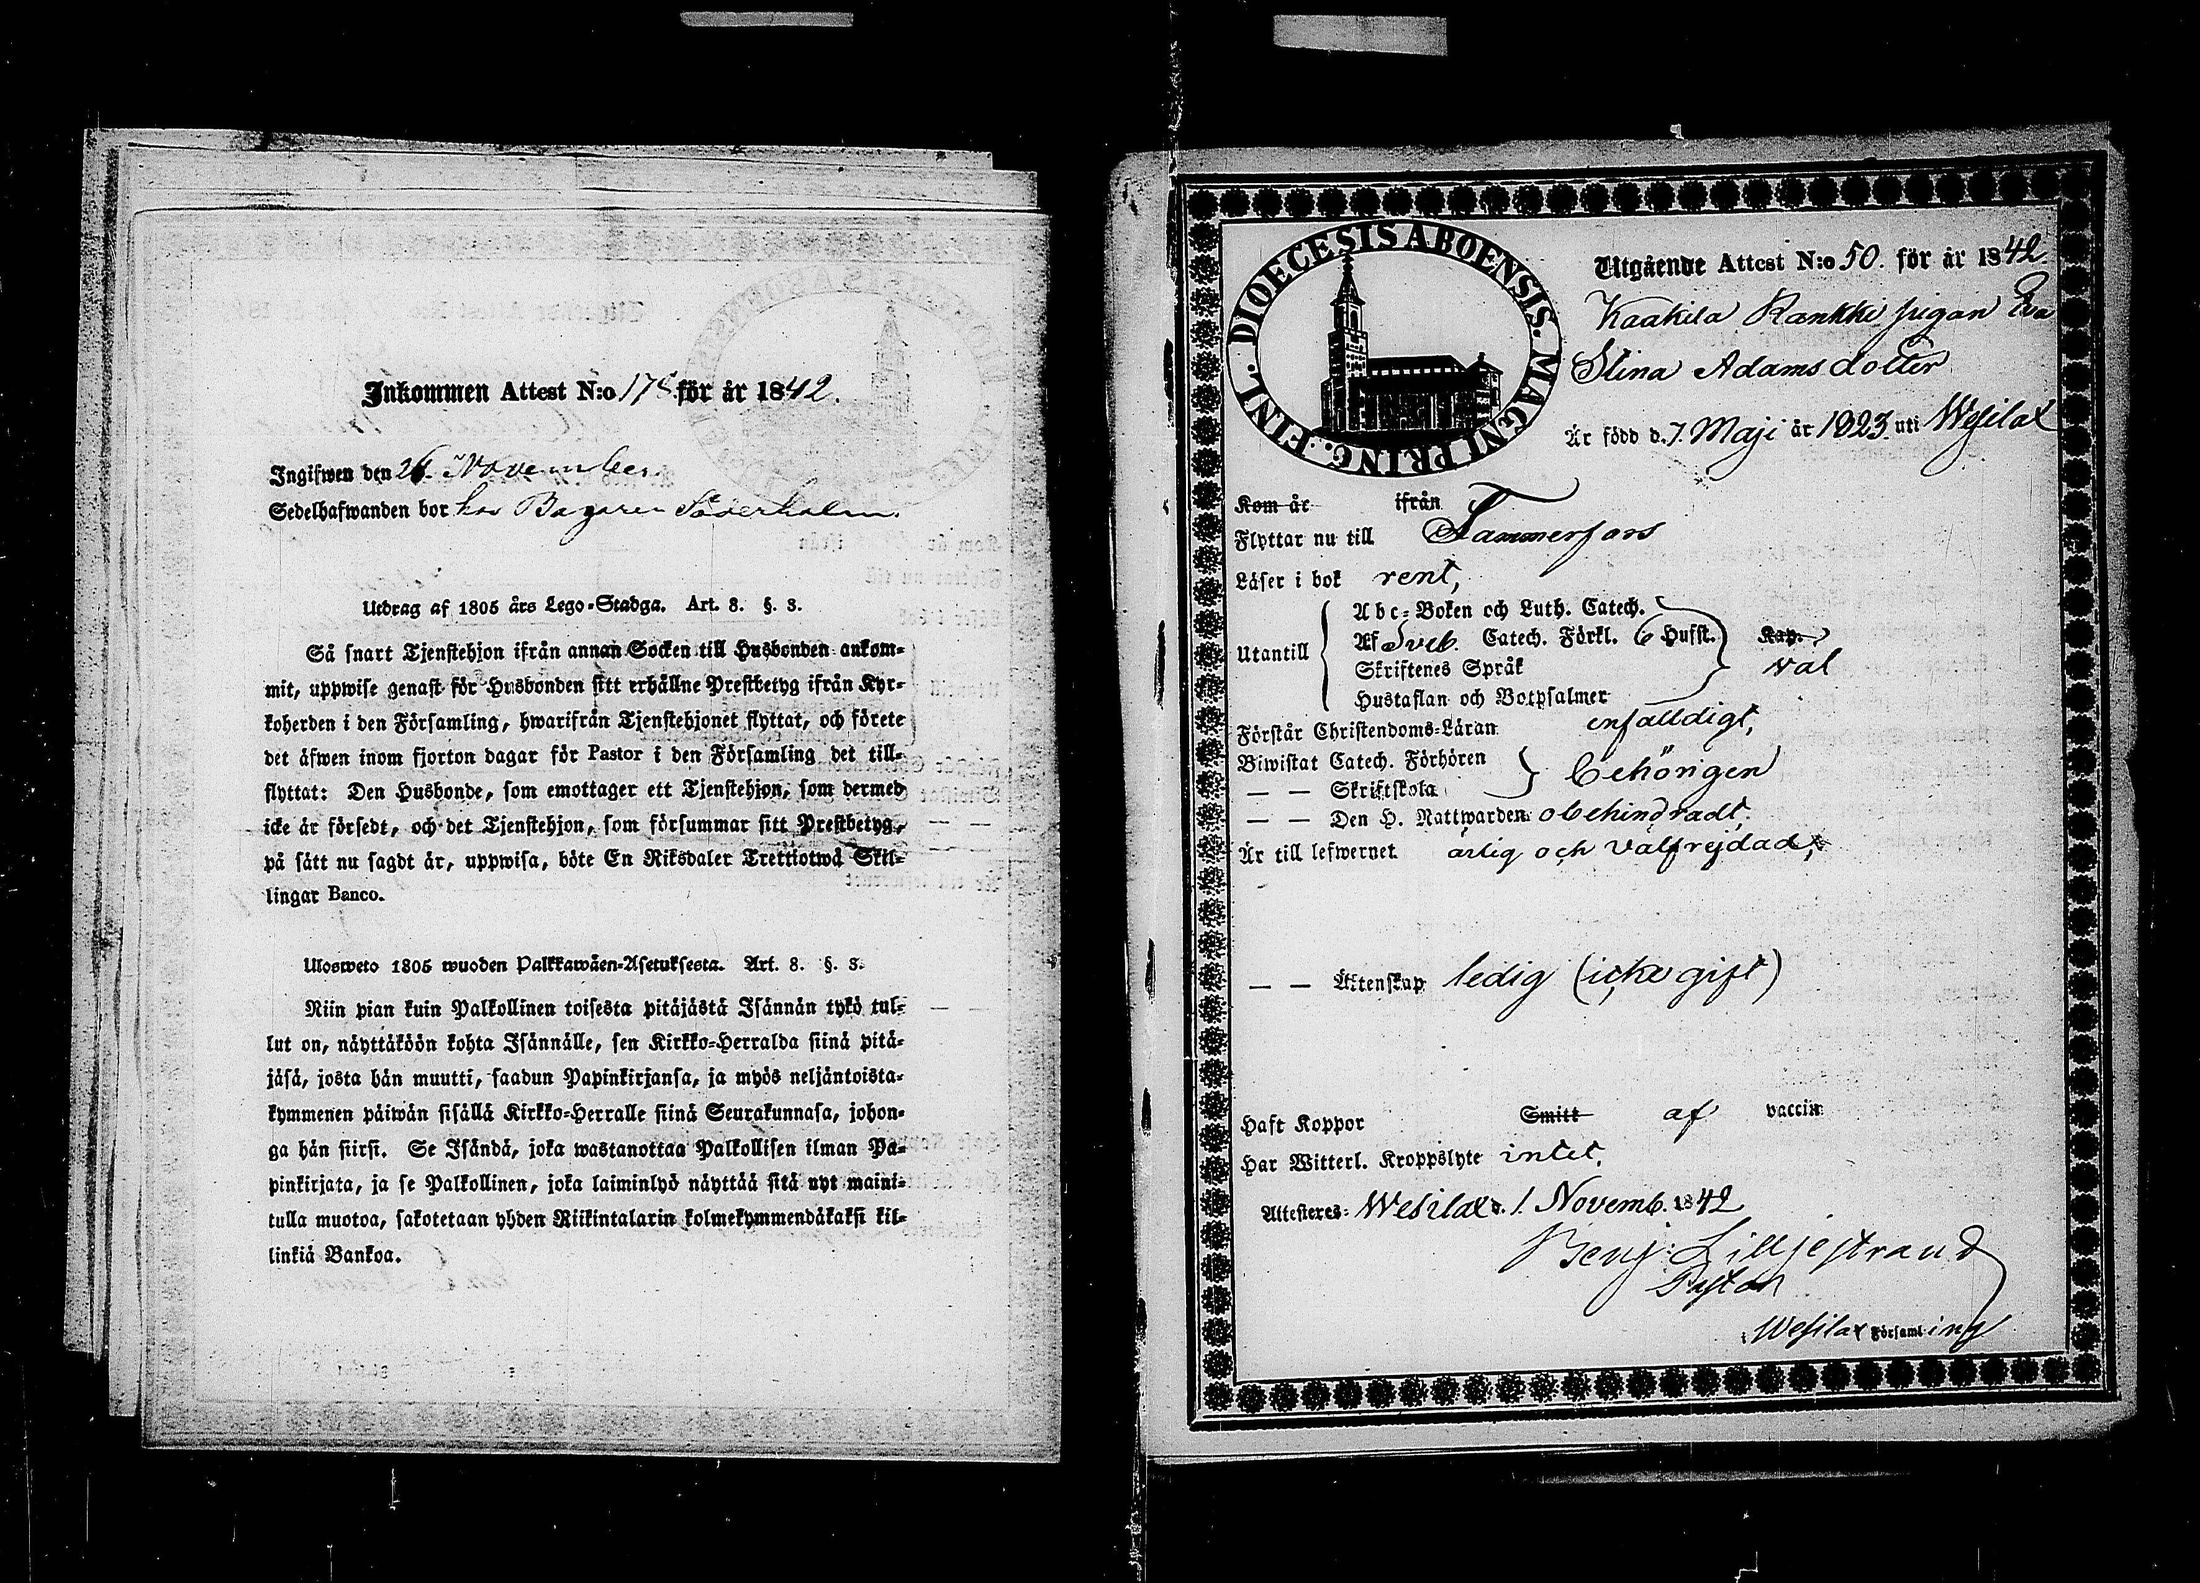 Inkommen Attest N:o 178 för år 1842.
Ingifwen den 26. November.
Sedelhafwanden bor hos Bagaren Söderholm.
Utdrag af 1805 års Lego-Stadga. Art. 8. §. 3.
Så snart Tjenstehjon ifrån annan Socken till Husbonden ankom-
mit, uppwise genast för Husbonden sitt erhållne Prestbetyg ifrån Kyr-
koherden i den Församling, hwarifrån Tjenstehjonet flyttat, och förete
det äfwen inom fjorton dagar för Pastor i den Församling det till-
flyttat: Den Husbonde, som emottager ett Tjenstehjon, som dermed
icke är försedt, och det Tjenstehjon, som försummar sitt Prestbetyg,
på sätt nu sagdt är, uppwisa, böte En Riksdaler Trettiotwå Skil-
lingar Banco.
Ulosweto 1805 wuoden Palkkawäen-Asetuksesta. Art. 8. §. 3.
Niin pian kuin Palkollinen toisesta pitäjästä Isännän tykö tul-
lut on, näyttäköön kohta Isännälle, sen Kirkko-Herralda siinä pitä-
jäsä, josta hän muutti, saadun Papinkirjansa, ja myös neljäntoista-
kymmenen päiwän sisällä Kirkko-Herralle siinä Seurakunnasa, johon-
ga hän siirsi. Se Isändä, joka wastanottaa Palkollisen ilman Pa-
pinkirjata, ja se Palkollinen, joka laiminlyö näyttää sitä nyt maini-
tulla muotoa, sakotetaan yhden Riikintalarin kolmekymmendäkaksi kil-
linkiä Bankoa.
DIOECESIS ABOENSIS. MAGNI PRINC. FINL.
Utgående Attest N:o 50. för år 1842.
Kaakila Rankki pigan Eva
Stina Adamsdotter
Är född d. 7. Maji år 1823. uti Wesilax
Kom år ifrån
Flyttar nu till Tammerfors
Läser i bok rent,
Abc-Boken och Luth. Catech.
Utantill Af Sveb. Catech. Förkl. 6 Hufst. Kap.
Skriftenes Språk väl
Hustaflan och Botpsalmer
Förstår Christendoms-Läran enfalldigt,
Biwistat Catech. Förhören behörigen
— — Skriftskola
— — Den H. Nattwarden obehindradt,
Är till lefwernet ärlig och välfrejdad,
— — Äktenskap ledig (icke gift)
Haft Koppor Smitt af vaccin
Har Witterl. Kroppslyte intet.
Attesteres: Wesilax d. 1. Novemb. 1842
Benj: Lilljestrand
Pastor
i Wesilax Församling